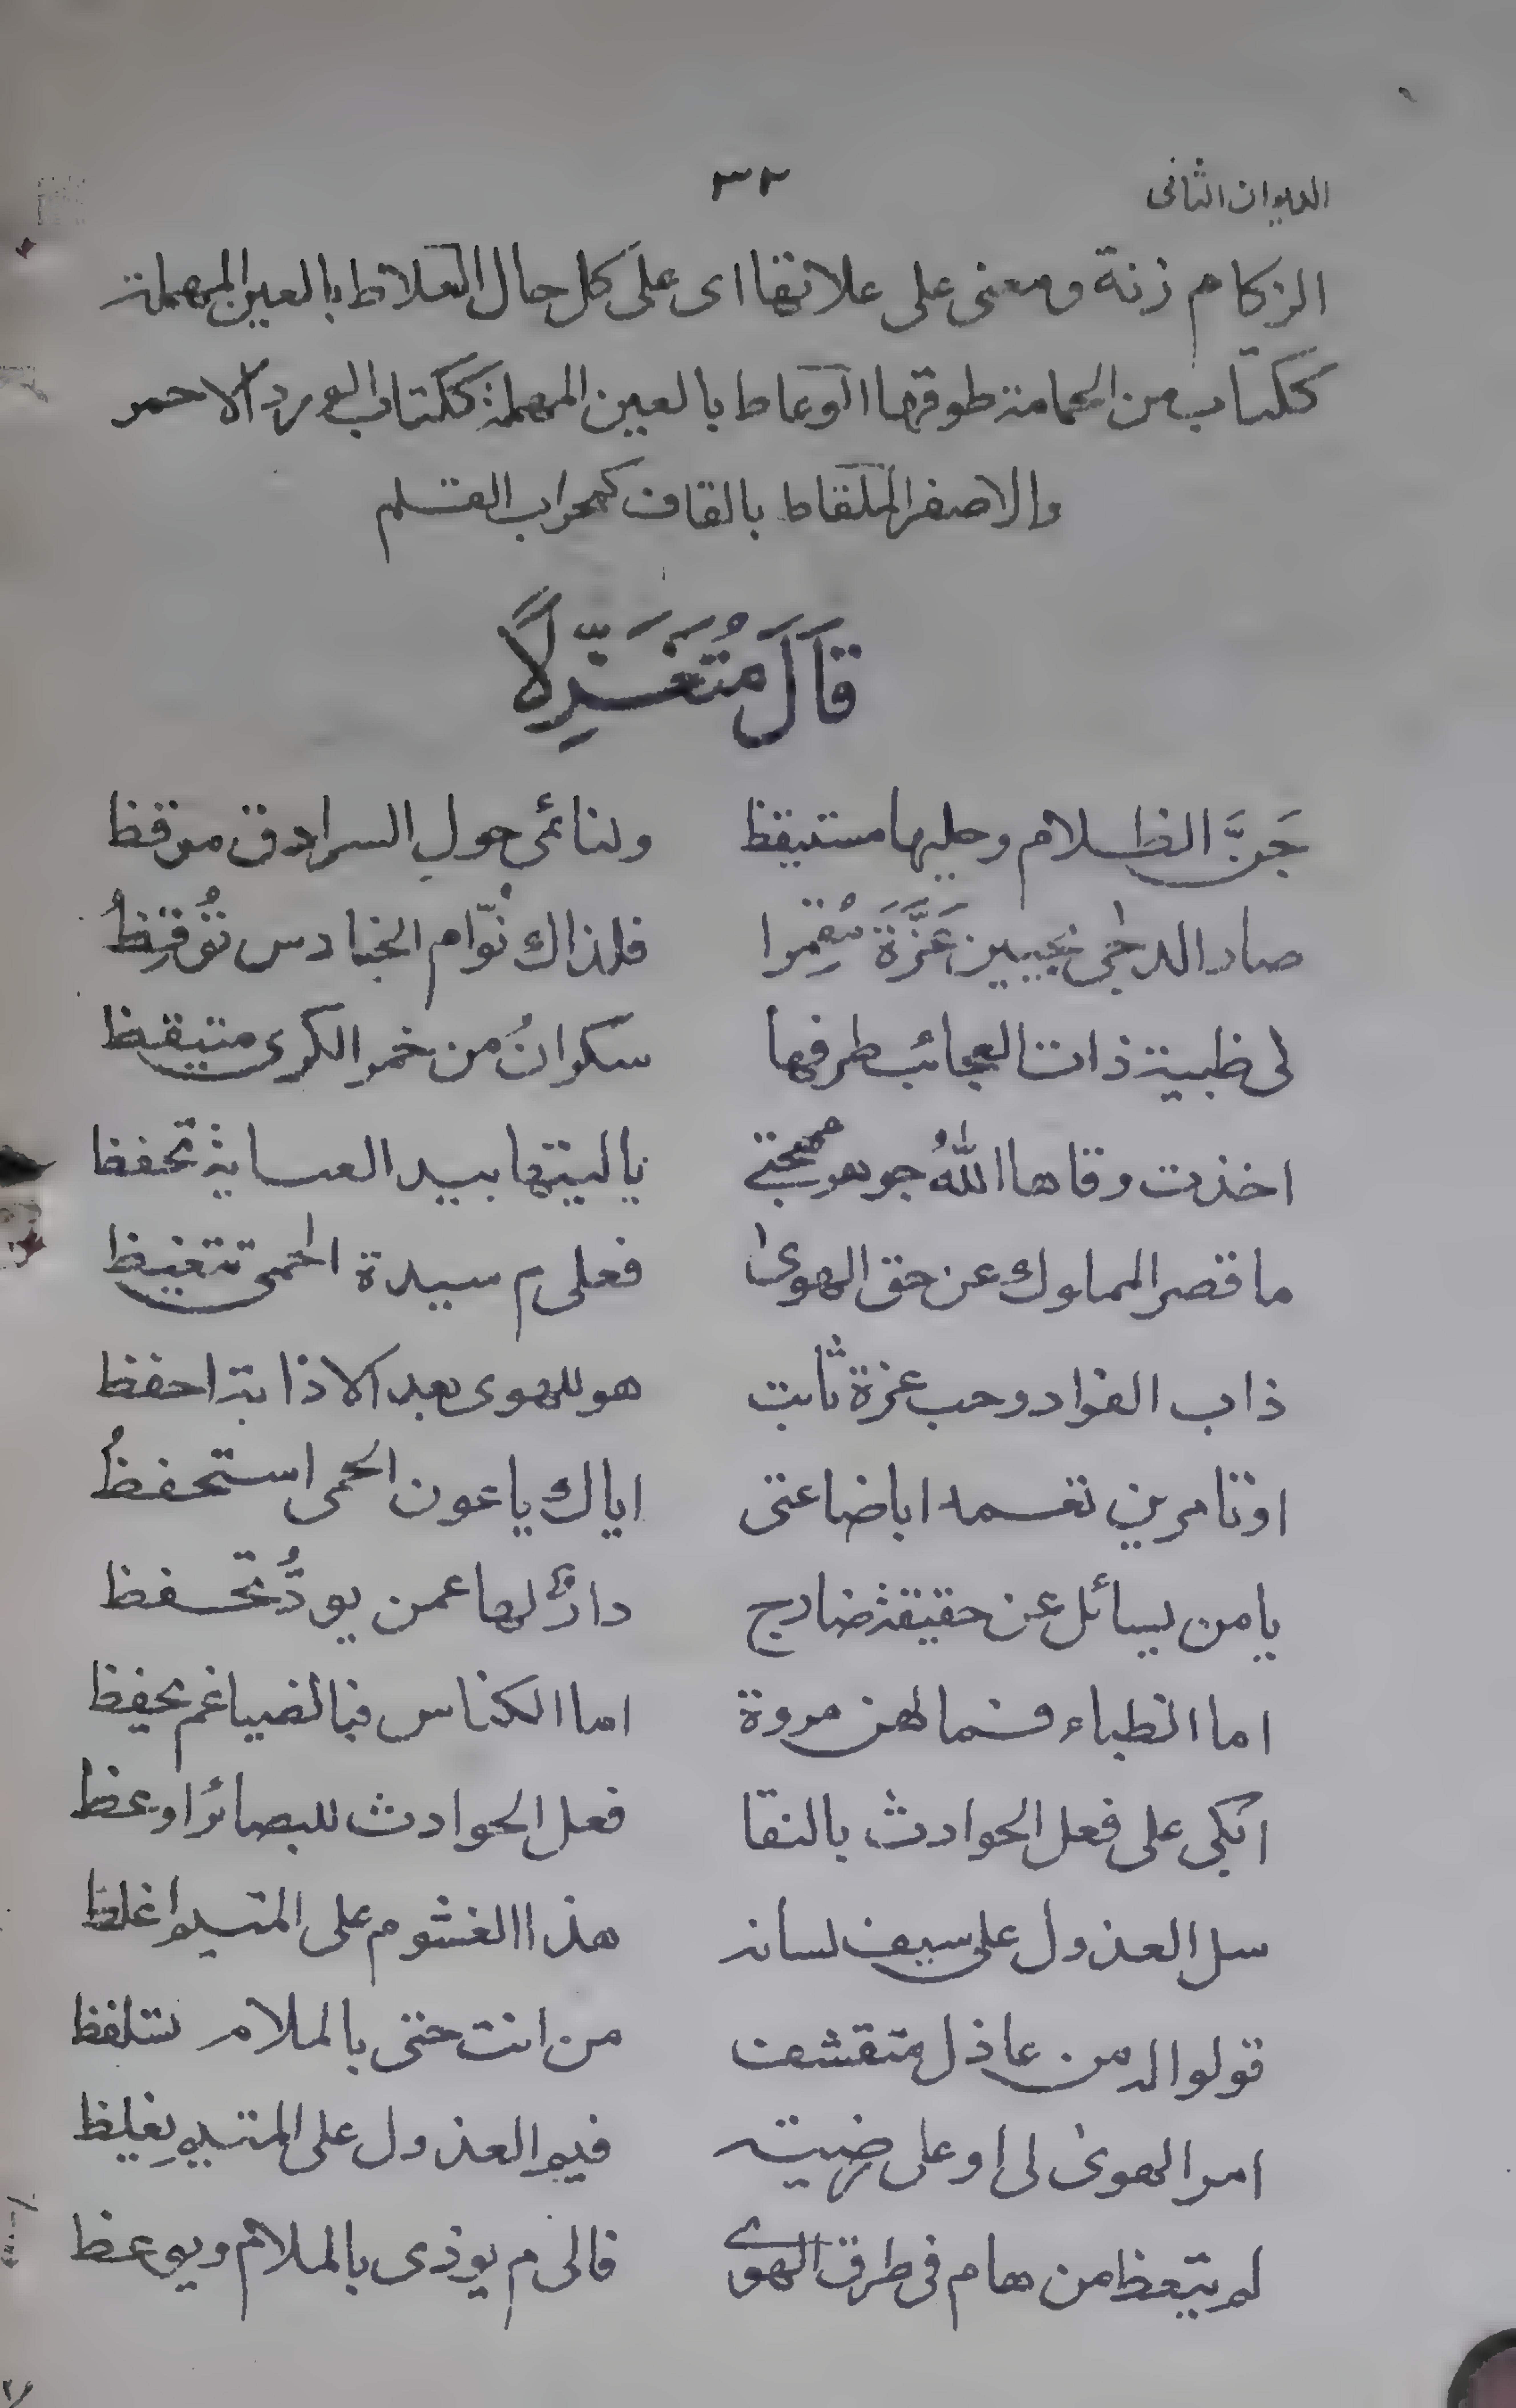 الديوان الثانى
٣٢
الزكام زنة ومعنى على علاتها اى على كل حال العلاط بالعين المهملة
ككتاب من الحمامة طوقها الوعاط بالعين المهملة ككتاب الورد الاحمر
والاصفر الملقاط بالقاف كمحراب القلم
قَالَ مُتَغَزِّلًا
جَنَّ الظلام وحليها مستيقظ ولنائمى حول السرادق موقظ
صار الدجى بجبين عَزَّةَ مُقمِرا فلذاك نُوّام الحنادس تُوقِظُ
لى ظبية ذات العجائب طرفها سكرانُ من خمر الكرى متيقظ
اخذت وقاها اللهُ جوهر مهجتى ياليتها بيد العناية تحفظ
ما قصر المملوك عن حق الهوى فعلى م سيدة الحمى تتغيظ
ذاب الفواد وحب عزة ثابت هو للهوى بعد الاذابة احفظ
اوتامرين تعمدا باضاعتى اياك ياعون الحمى استحفظُ
يامن يسائل عن حقيقة ضارج دارٌ لها عمن يودُّ تحفظ
اما الظباء فما لهن مروة اما الكناس فبالضياغم يحفظ
ابكى على فعل الحوادث بالنقا فعل الحوادث للبصائر اوعظ
سل العذول على سيف لسانه هذا الغشوم على المتيم اغلظ
قولوا له من عاذل متقشف من انت حتى بالملام تتلفظ
امر الهوى لى او على رضيته فيم العذول على المتيم يغلِظ
لم يتعظ من هام فى طرق الهوى فالى م يوذى بالملام ويوعظ